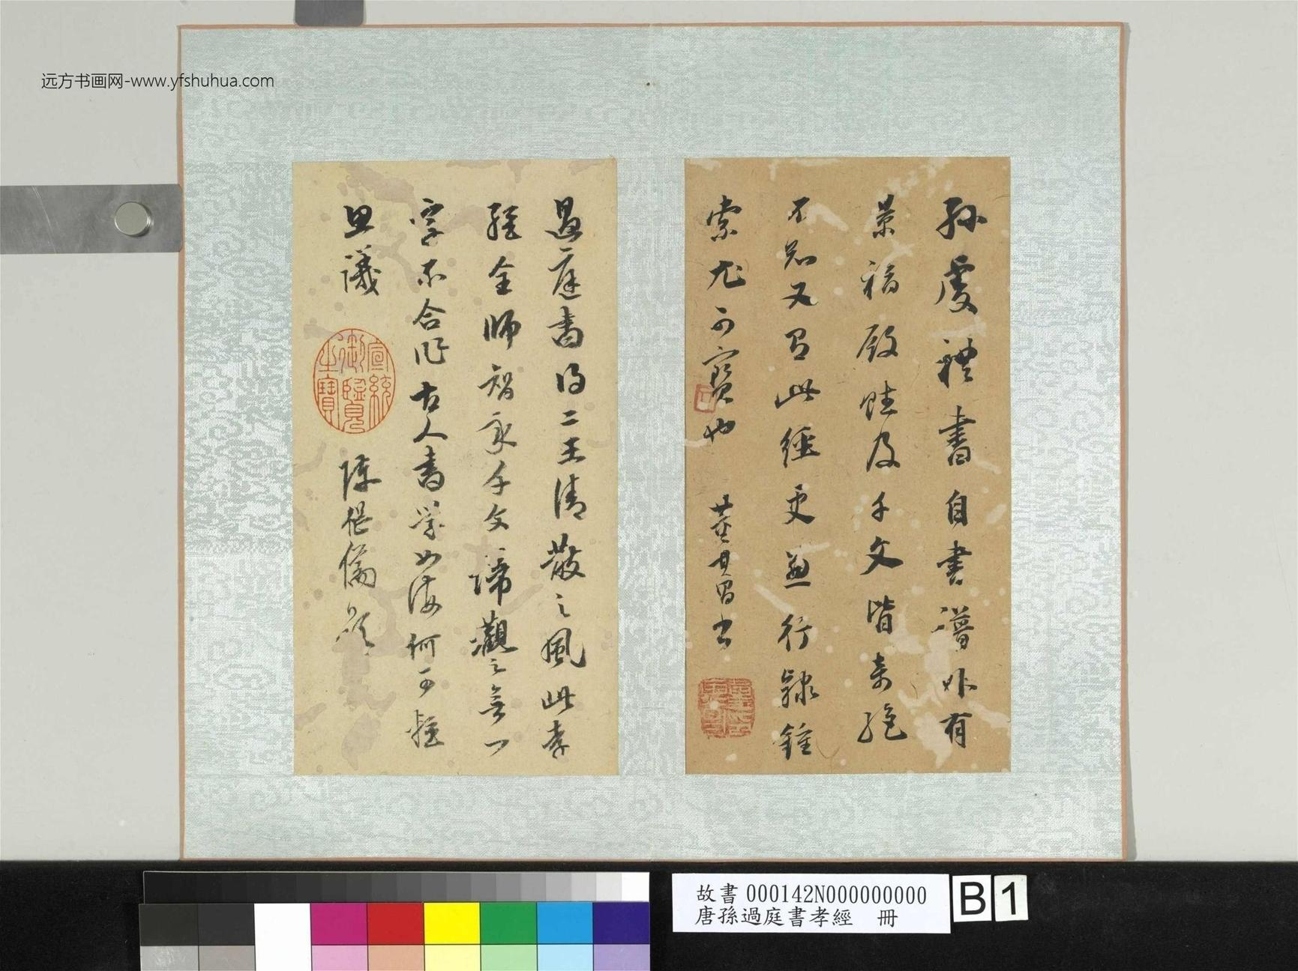 远方书画网-www.yfshuhua.com
孫虔禮書自書譜外有
景福殿賦及千文皆奇絕
不知又有此經更兼行隸鍾
索尤可寶也 董其昌書
過庭書得二王清散之風此孝
經全師智永千文諦觀之無一
字不合作古人書學如海何可輕
思議 陳繼儒題
宣統御覽之寶
故書 000142N000000000
唐孫過庭書孝經 冊
B 1